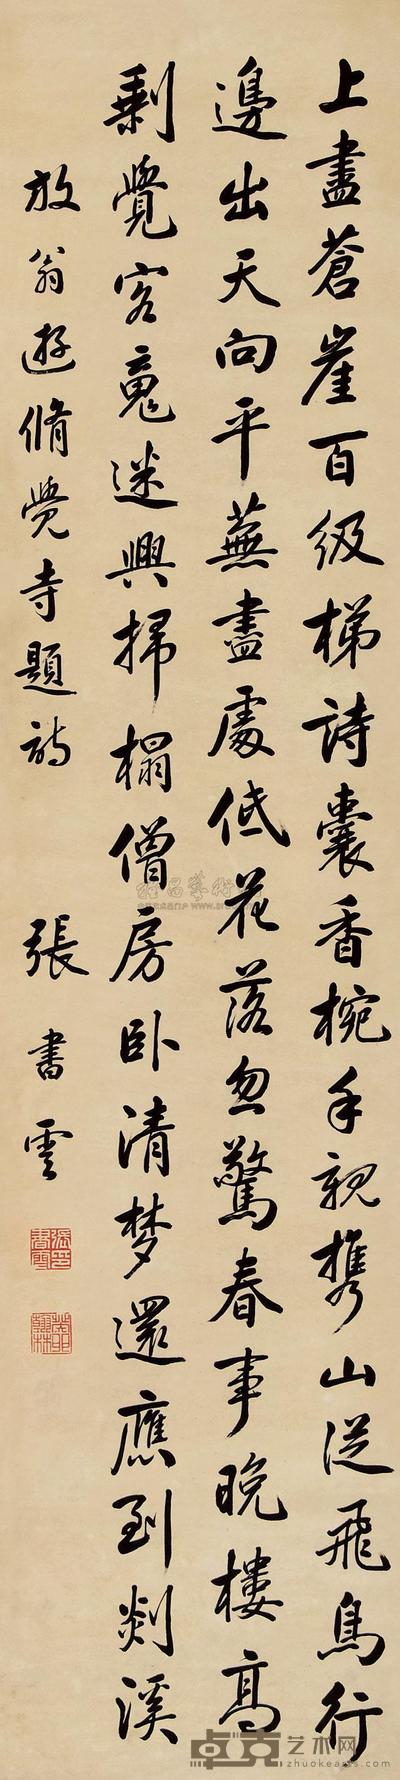 上盡蒼崖百級梯詩囊香椀手親攜山從飛鳥行
邊出天向平蕪盡處低花落忽驚春事晚樓高
剩覺客魂迷興掃榻僧房臥清梦還應到剡溪
放翁遊脩覺寺題詩 張書雲
張書雲印
卓克艺术网
zhuokearts.com